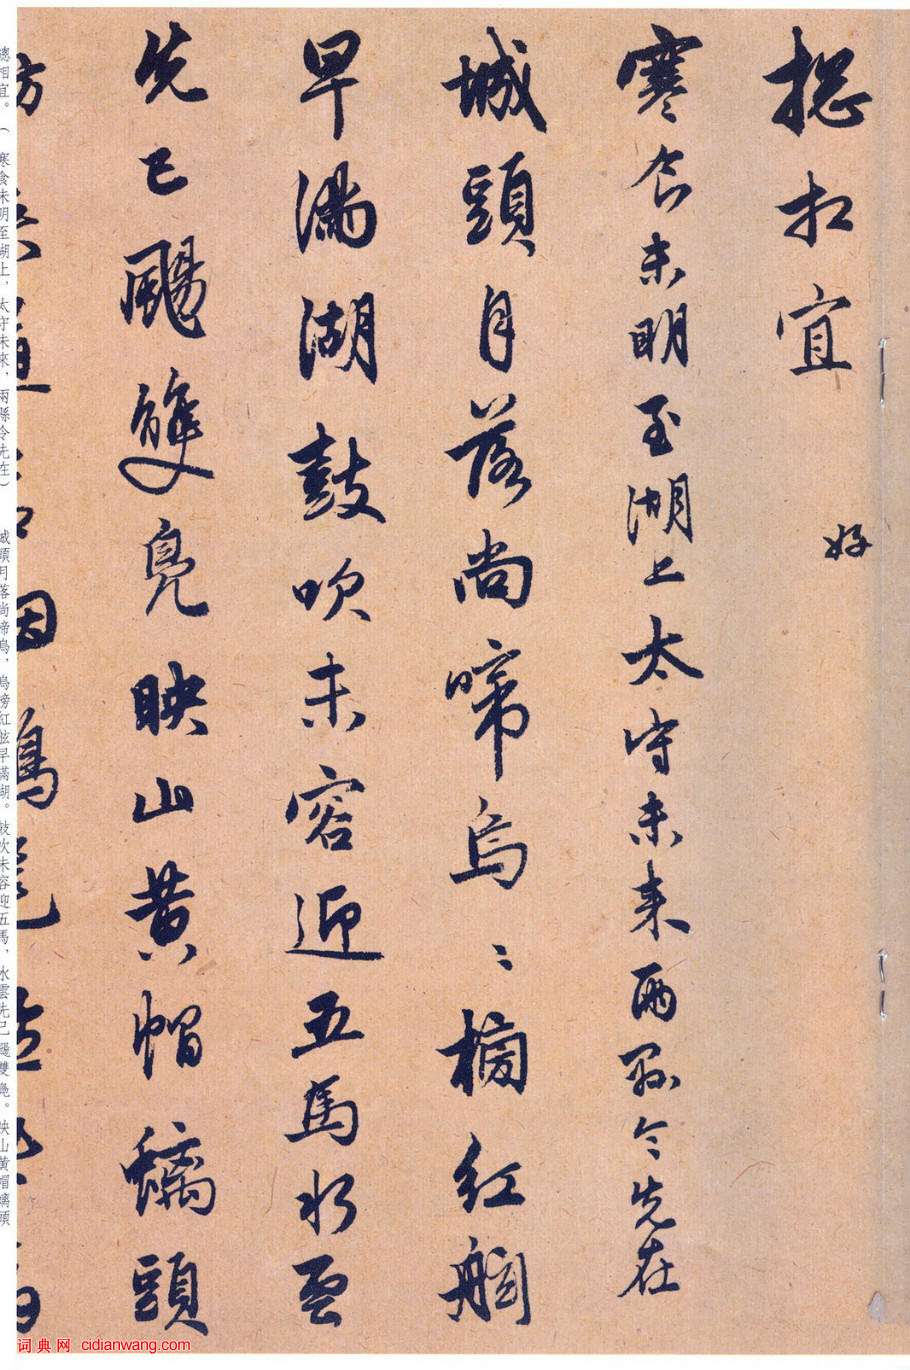 揔相宜
好
寒食未明至湖上太守未来兩縣令先在
城頭月落尚啼烏〻榜紅舷
早滿湖鼓吹未容迎五馬水雲
先已颺雙鳧映山黃帽螭頭
總相宜。(寒食未明至湖上,太守未來,兩縣令先在) 城頭月落尚啼烏,烏榜紅舷早滿湖。鼓吹未容迎五馬,水雲先已颺雙鳧。映山黃帽螭頭
词典网 cidianwang.com